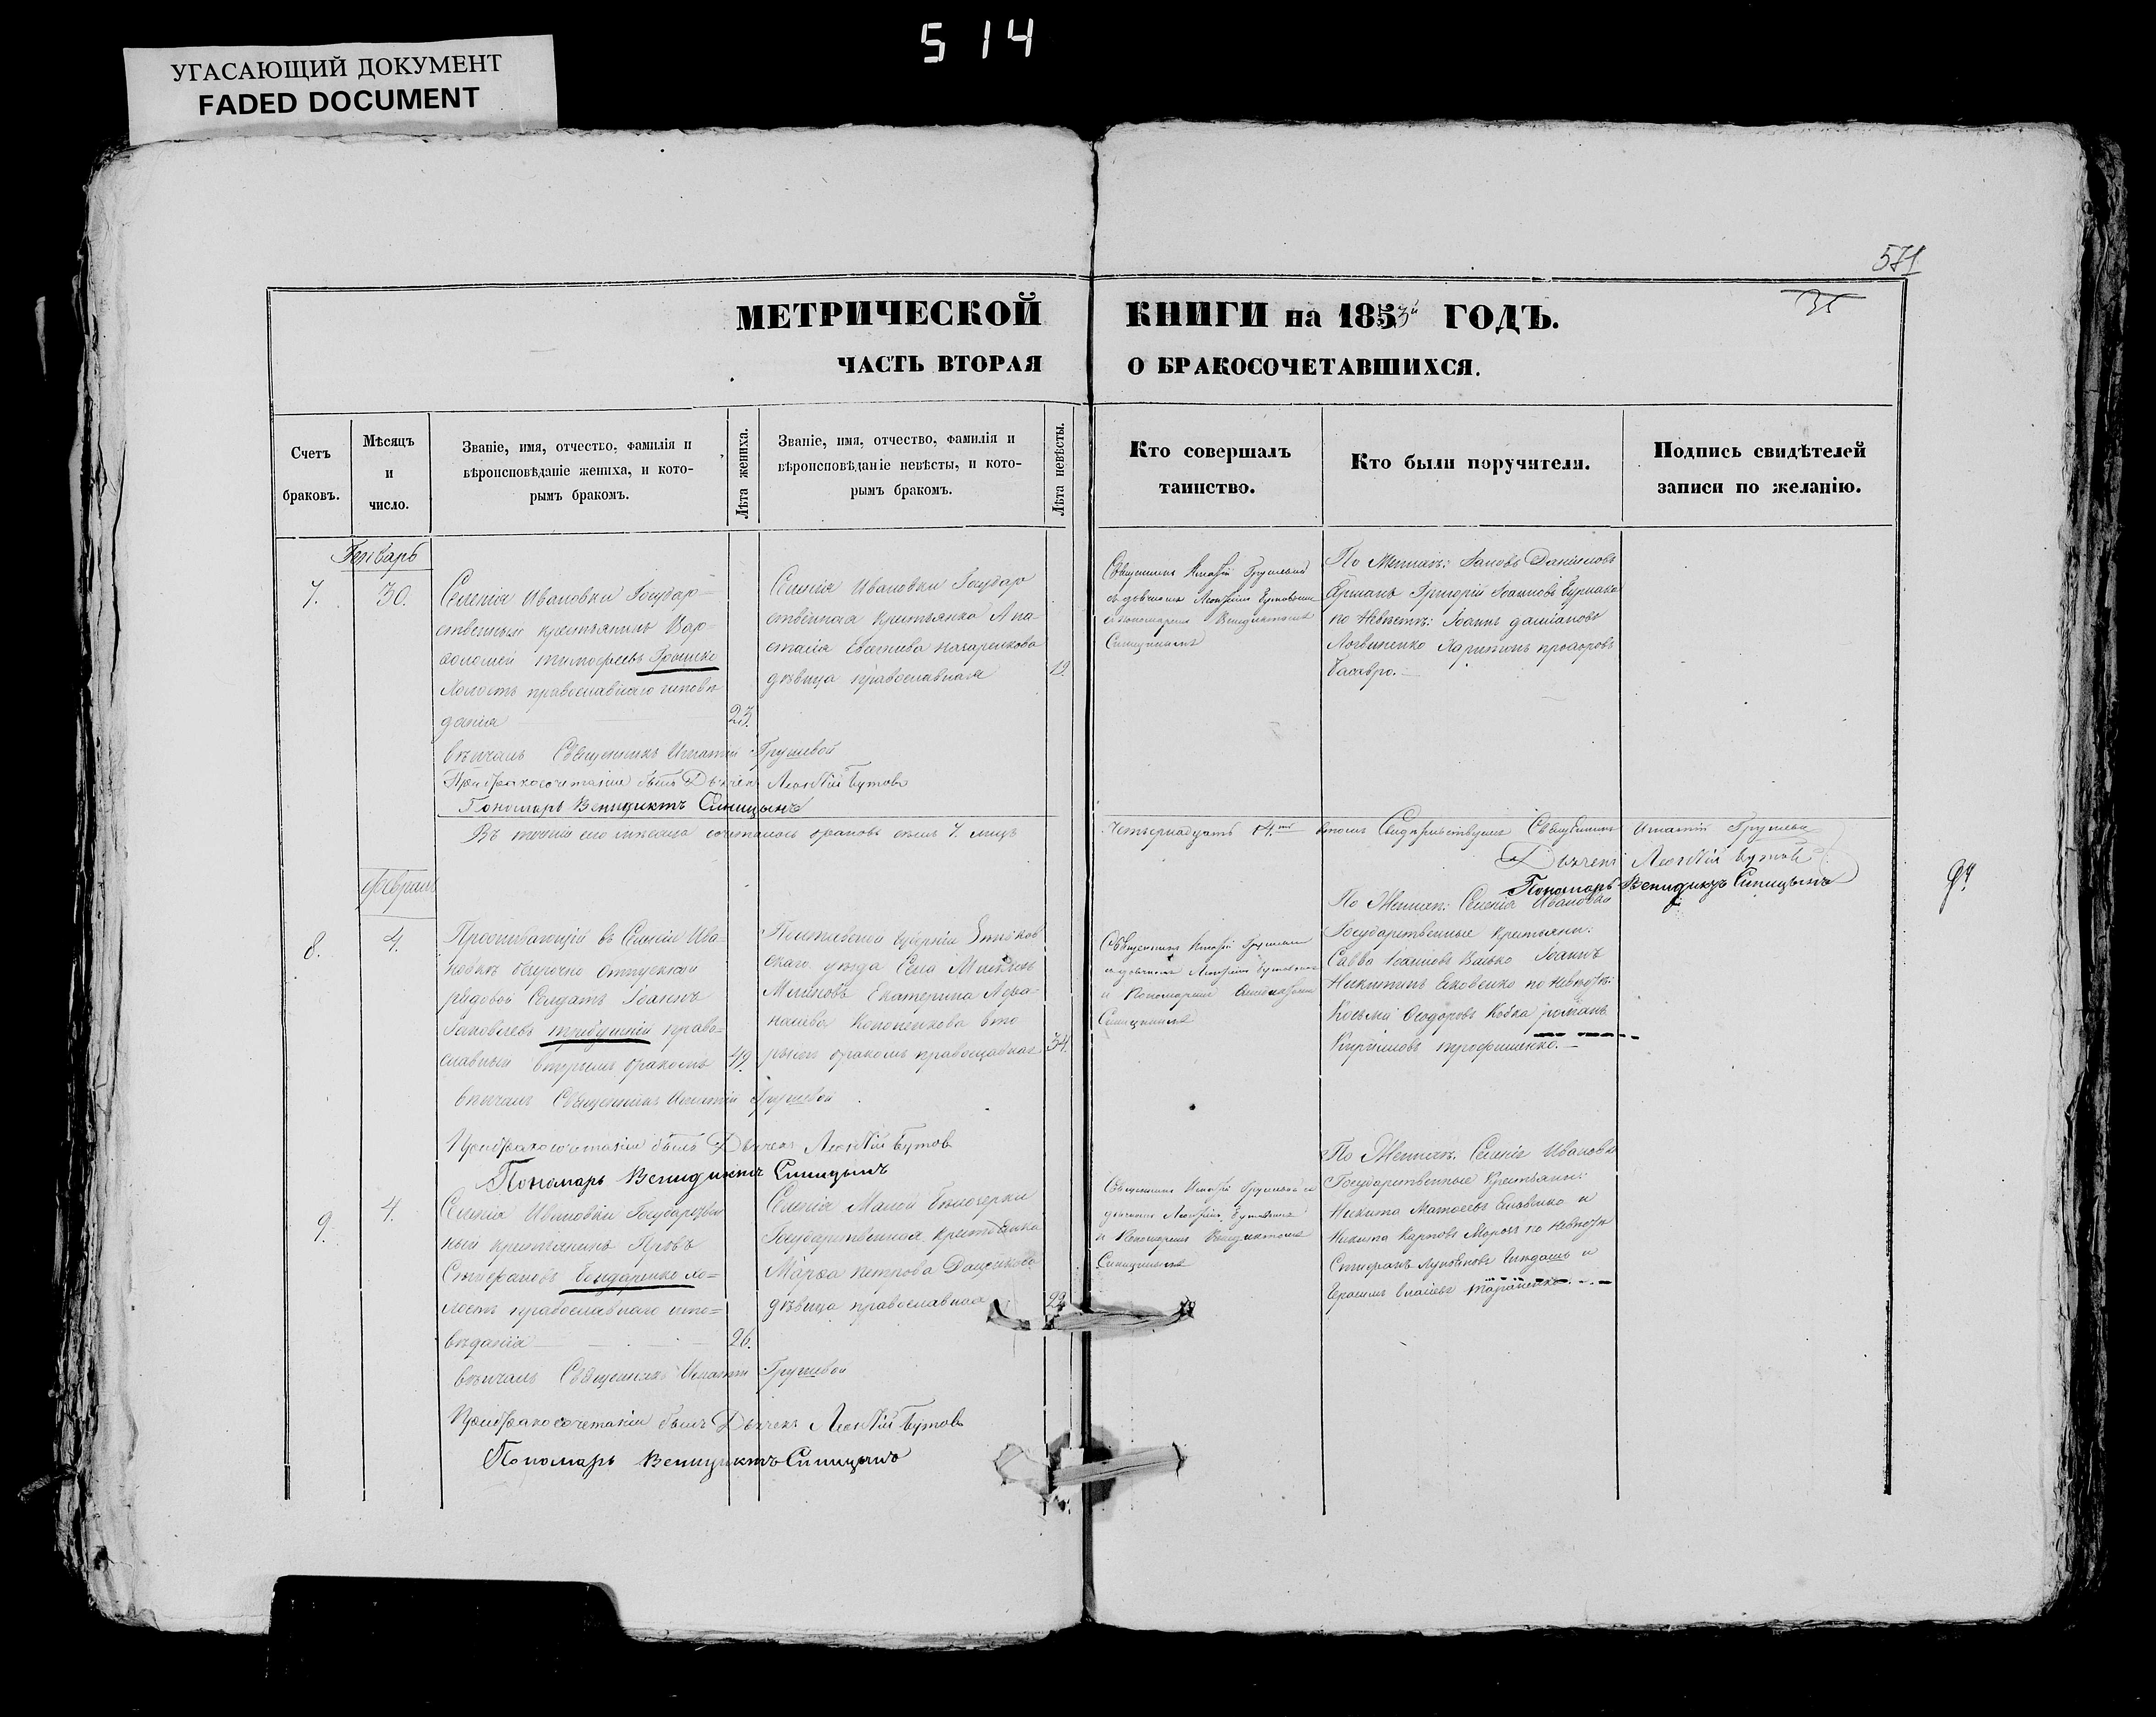 5 14
УГАСАЮЩИЙ ДОКУМЕНТ
FADED DOCUMENT
571
31
МЕТРИЧЕСКОЙ КНИГИ на 1853й ГОДЪ.
ЧАСТЬ ВТОРАЯ О БРАКОСОЧЕТАВШИХСЯ.
Счетъ браковъ.
Мѣсяцъ и число.
Званіе, имя, отчество, фамилія и
вѣроисповѣданіе жениха, и кото-
рымъ бракомъ.
Лѣта жениха.
Званіе, имя, отчество, фамилія и
вѣроисповѣданіе невѣсты, и кото-
рымъ бракомъ.
Лѣта невѣсты.
Кто совершалъ
таинство.
Кто были поручители.
Подпись свидѣтелей
записи по желанію.
Генварь
7.
30.
Селенія Ивановки Государ-
ственный крестьянинъ Вар-
ѳоломей Тимофеевъ Грошенко
Холостъ православнаго исповѣ
данія
23.
Селенія Ивановки Государ
ственная Крестьянка Ана-
стасія Евгениева Назаренкова
дѣвица православная
19.
Священникъ Игнатій Грушевой
съ дьячкомъ Леонтіемъ Бутовымъ
и пономаремъ Венидиктомъ
Синицинымъ
По Женихѣ: Іаковъ Даниловъ
Григорій Іоанновъ
по Невѣстѣ: Іоаннъ Даміановъ
Логвиненко Харитонъ Прохоровъ
вѣнчалъ Священникъ Игнатій Грушевой
При бракосочетаніи былъ Дьячекъ Леонтій Бутовъ
Пономарь Венидиктъ Синицынъ
Въ теченіи сего месяца сочеталось браковъ семь 7. лицъ четырнадцать 14. въ томъ Свидетельствуемъ Священникъ Игнатій Грушевой
Дьячекъ Леонтій Бутовъ
Пономарь Венидиктъ Синицынъ
Февраль
8.
4.
Проживающій въ Селеніи Ива-
новкѣ безсрочно отпускной
рядовой Солдатъ Іоаннъ
Іаковлевъ Трибушній право-
славный вторымъ бракомъ
49.
Полтавской Губерніи Зеньков
скаго уѣзда Села
Екатерина Афа-
насіева Кононенкова вто
рымъ бракомъ православная
34.
Священникъ Игнатій Грушевой
съ дьячкомъ Леонтіемъ Бутовымъ
и Пономаремъ Венидиктомъ
Синицинымъ
По Женихѣ: Селенія Ивановки
Государственные Крестьяни:
Савва Іоанновъ Іоаннъ
Никитинъ Яковенко по Невѣстѣ:
Косьма Ѳеодоровъ Кобка романъ
Кириловъ Трофименко.
вѣнчалъ Священникъ Игнатій Грушевой
При бракосочетаніи былъ Дьячекъ Леонтій Бутовъ
Пономарь Венидиктъ Синицынъ
9.
4.
Селенія Ивановки Государствен
ный крестьянинъ Провъ
Стефановъ Бондаренко хо-
лостъ православнаго испо-
вѣданія
26.
Селенія Малой Бѣлозерки
Государственная Крестьянка
Марѳа Петрова Даценкова
дѣвица православная
Священникъ Игнатій Грушевой съ
дьячкомъ Леонтіемъ Бутовымъ
и Пономаремъ Венидиктомъ
Синицинымъ
По Женихѣ: Селенія Ивановки
Государственные Крестьяни:
Никита Матѳеевъ и
Никита Карповъ Морозъ по Невѣстѣ
Стефанъ и
Герасимъ Тараненко
вѣнчалъ Священникъ Игнатій Грушевой
При бракосочетаніи былъ Дьячекъ Леонтій Бутовъ
Пономарь Венидиктъ Синицынъ